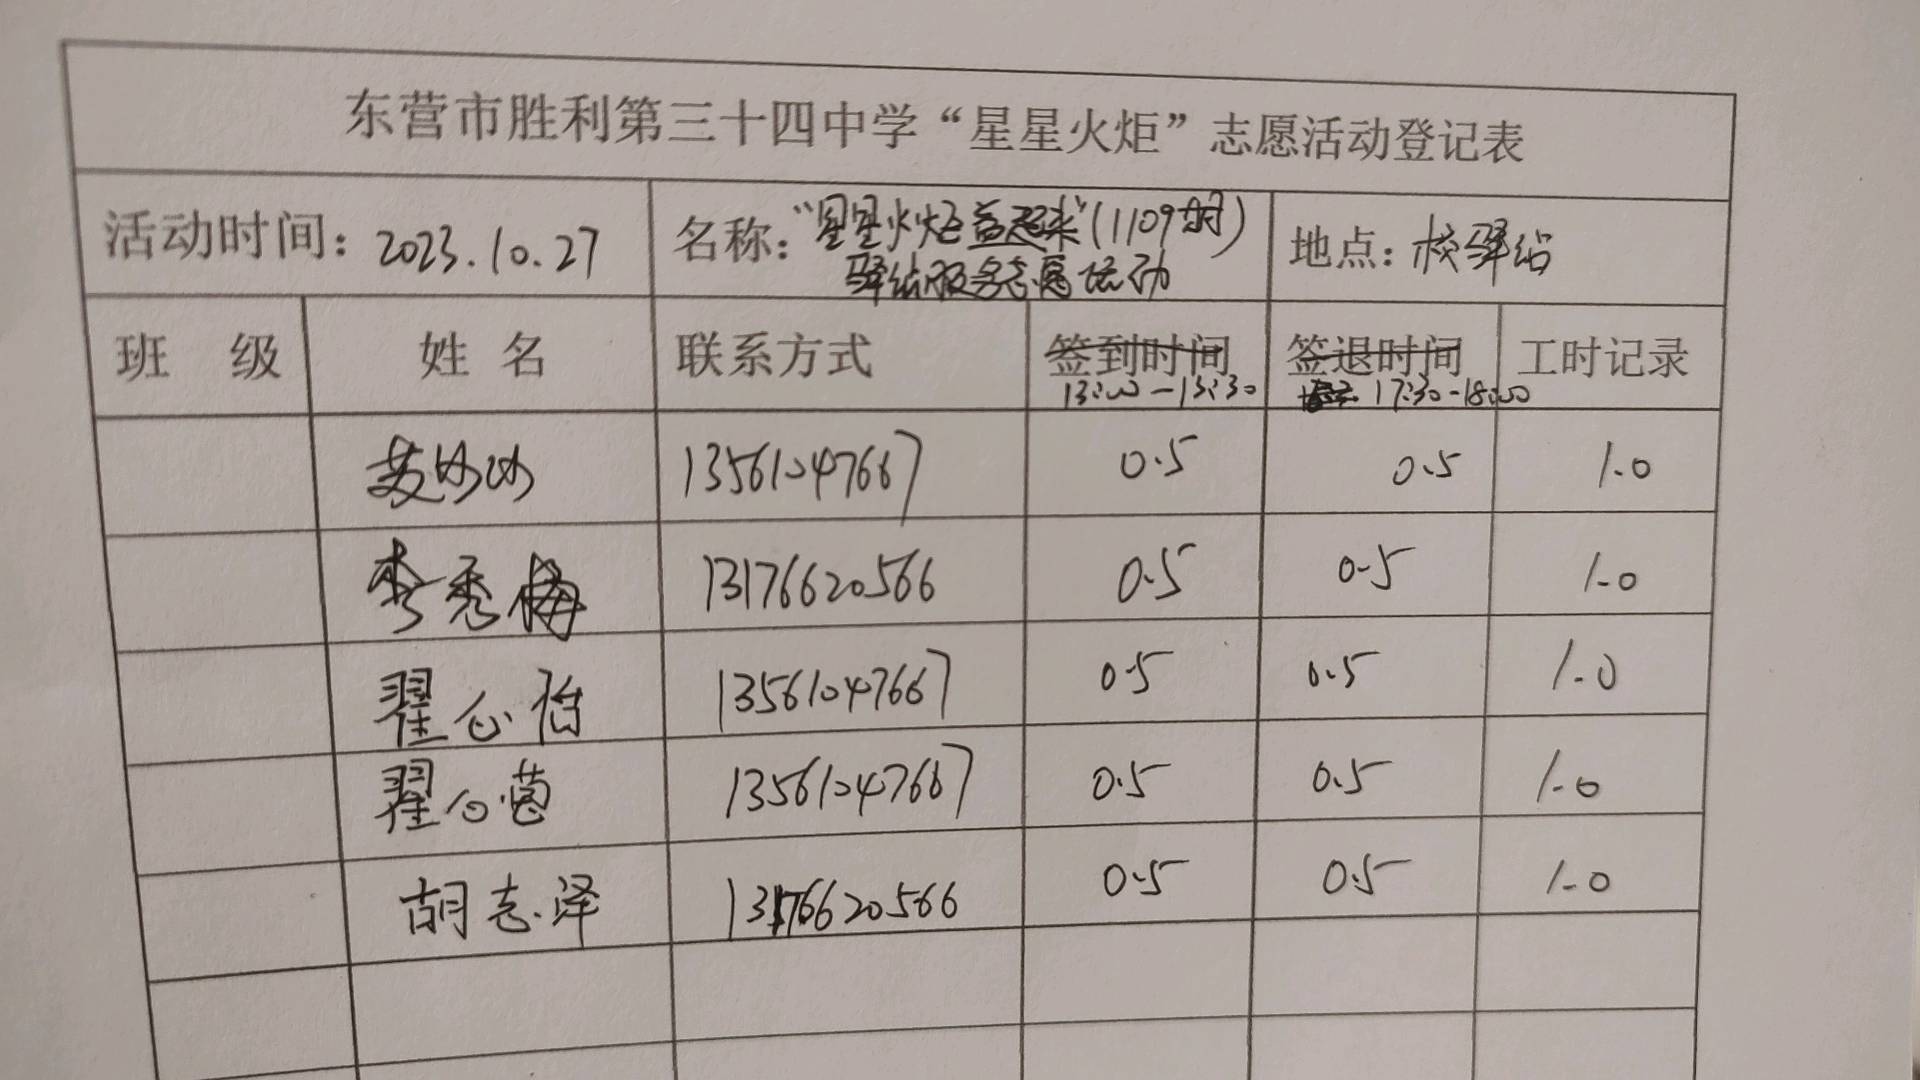 东营市胜利第三十四中学“星星火炬”志愿活动登记表
活动时间：2023.10.27 名称：“星星火炬益起来”(1109期) 地点：校驿站
驿站服务志愿活动
班 级 姓 名 联系方式 签到时间 签退时间 工时记录
13:00-13:30 17:30-18:00
13561047667 0.5 0.5 1.0
李秀梅 13176620566 0.5 0.5 1.0
翟 13561047667 0.5 0.5 1.0
翟 13561047667 0.5 0.5 1.0
胡志泽 13176620566 0.5 0.5 1.0